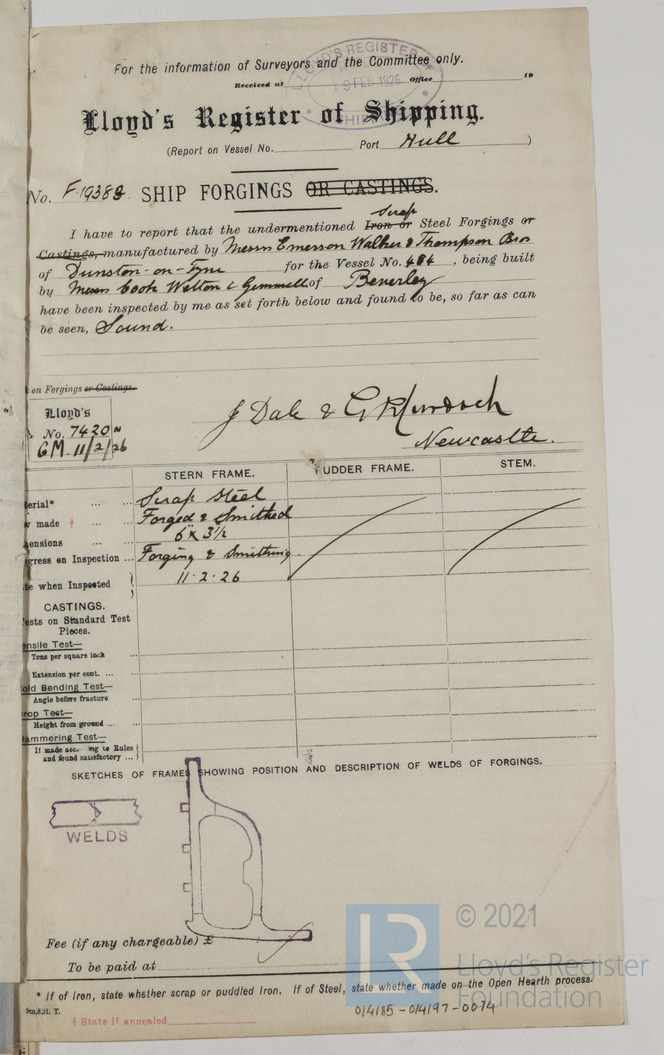 For the information of Surveyors and the Committee only.
LLOYD'S REGISTER OF
Received at 19 FEB 1926 Office 19
SHIPPING
Lloyd's Register of Shipping.
(Report on Vessel No. Port Hull )
No. F.19389 SHIP FORGINGS OR CASTINGS.
Scrap
I have to report that the undermentioned Iron or Steel Forgings or
Castings, manufactured by Messrs Emerson Walker & Thompson Bros
of Dunston-on-Tyne for the Vessel No. 484, being built
by Messrs Cook Welton & Gemmell of Beverley
have been inspected by me as set forth below and found to be, so far as can
be seen, Sound.
on Forgings or Castings.
Lloyd's
No. 7420 N
GM. 11/2/26
J Dale & G Murdoch
Newcastle.
STERN FRAME. RUDDER FRAME. STEM.
erial* Scrap Steel
w made † Forged & Smithed
ensions 6" x 3½
gress on Inspection Forging & Smithing
te when Inspected 11.2.26
CASTINGS.
ests on Standard Test
Pieces.
ensile Test—
Tons per square inch
Extension per cent.
old Bending Test—
Angle before fracture
rop Test—
Height from ground
ammering Test—
If made according to Rules
and found satisfactory
SKETCHES OF FRAMES SHOWING POSITION AND DESCRIPTION OF WELDS OF FORGINGS.
WELDS
Fee (if any chargeable) £
To be paid at
* If of Iron, state whether scrap or puddled Iron. If of Steel, state whether made on the Open Hearth process.
† State if annealed
014185-014197-0074
LR
© 2021
Lloyd's Register
Foundation